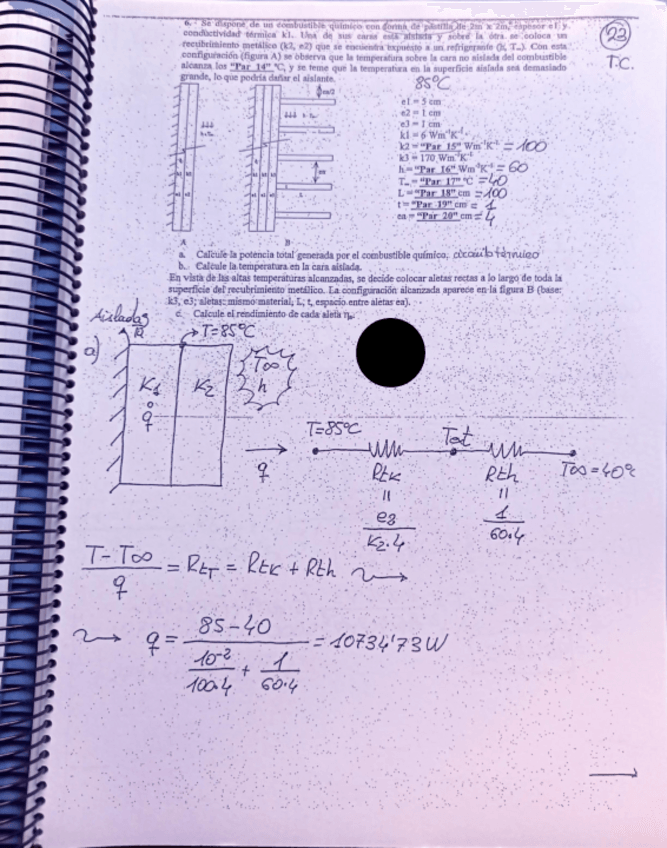 6. - Se dispone de un combustible químico con forma de pastilla de 2m x 2m, espesor e1 y
conductividad térmica k1. Una de sus caras está aislada y sobre la otra se coloca un
recubrimiento metálico (k2, e2) que se encuentra expuesto a un refrigerante (h, T∞). Con esta
configuración (figura A) se observa que la temperatura sobre la cara no aislada del combustible
alcanza los "Par 14" ºC, y se teme que la temperatura en la superficie aislada sea demasiado
grande, lo que podría dañar el aislante.
23
T.C.
85ºC
e1 = 5 cm
e2 = 1 cm
e3 = 1 cm
k1 = 6 Wm⁻¹K⁻¹
k2 = "Par 15" Wm⁻¹K⁻¹ = 100
k3 = 170 Wm⁻¹K⁻¹
h = "Par 16" Wm⁻²K⁻¹ = 60
T∞ = "Par 17" ºC = 40
L = "Par 18" cm = 100
t = "Par 19" cm = 1
ea = "Par 20" cm = 4
A B
a. Calcule la potencia total generada por el combustible químico, circuito térmico
b. Calcule la temperatura en la cara aislada.
En vista de las altas temperaturas alcanzadas, se decide colocar aletas rectas a lo largo de toda la
superficie del recubrimiento metálico. La configuración alcanzada aparece en la figura B (base:
k3, e3; aletas: mismo material; L; t, espacio entre aletas ea).
c. Calcule el rendimiento de cada aleta η
a)
T=85ºC
K1
q̇
K2
T∞
h
q
T=85ºC
T∞=40ºC
Rtk
Rth
=
=
e2
K2·4
1
60·4
T - T∞
q
= RtT = Rtk + Rth
q = 85-40
10⁻²
100·4
+ 1
60·4
= 10734'73W